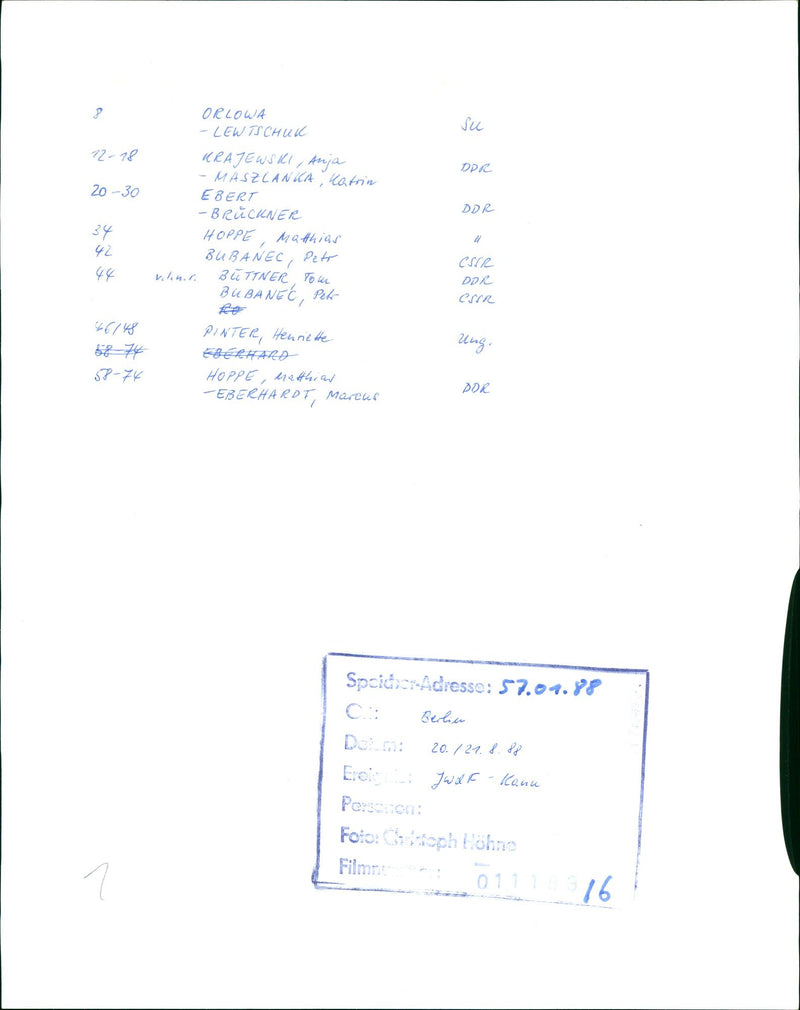 8 ORLOWA
- LEWTSCHUK SU
12-18 KRAJEWSKI, Anja
- MASZLANKA, Katrin DDR
20-30 EBERT
- BRÜCKNER DDR
34 HOPPE, Matthias "
42 BUBANEC, Petr CSSR
44 v.l.n.r. BÜTTNER, Tom DDR
BUBANEC, Petr CSSR
RO
46/48 PINTER, Henriette Ung.
58-74 EBERHARD
58-74 HOPPE, Matthias
- EBERHARDT, Marcus DDR
Speicher-Adresse: 57.01.88
Ort: Berlin
Datum: 20./21. 8. 88
Ereignis: JWdF - Kanu
Personen:
Foto: Christoph Höhne
Filmnummer: 16
1